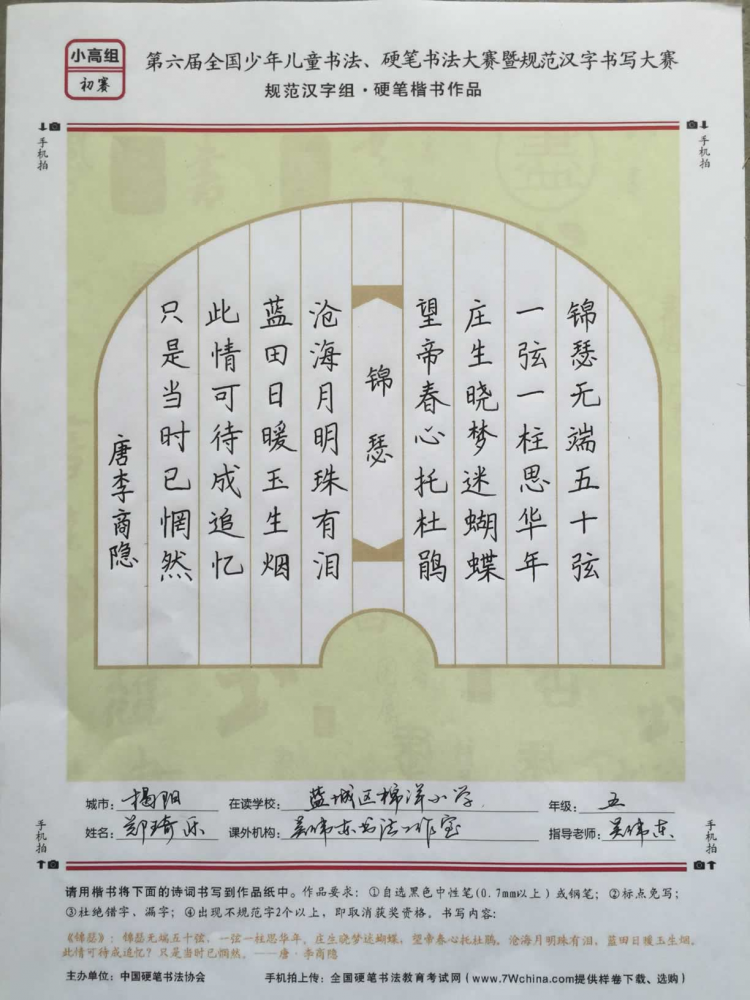 小高组
初赛
第六届全国少年儿童书法、硬笔书法大赛暨规范汉字书写大赛
规范汉字组·硬笔楷书作品
手机拍
手机拍
锦瑟无端五十弦
一弦一柱思华年
庄生晓梦迷蝴蝶
望帝春心托杜鹃
锦瑟
沧海月明珠有泪
蓝田日暖玉生烟
此情可待成追忆
只是当时已惘然
唐李商隐
城市：揭阳 在读学校：蓝城区棉洋小学 年级：五
姓名：郑琦乐 课外机构：吴伟东书法工作室 指导老师：吴伟东
手机拍
手机拍
请用楷书将下面的诗词书写到作品纸中。作品要求：①自选黑色中性笔(0.7mm以上)或钢笔；②标点免写；
③杜绝错字、漏字；④出现不规范字2个以上，即取消获奖资格。书写内容：
《锦瑟》：锦瑟无端五十弦，一弦一柱思华年。庄生晓梦迷蝴蝶，望帝春心托杜鹃。沧海月明珠有泪，蓝田日暖玉生烟。
此情可待成追忆？只是当时已惘然。——唐·李商隐
主办单位：中国硬笔书法协会 手机拍上传：全国硬笔书法教育考试网（www.7Wchina.com提供样卷下载、选购）